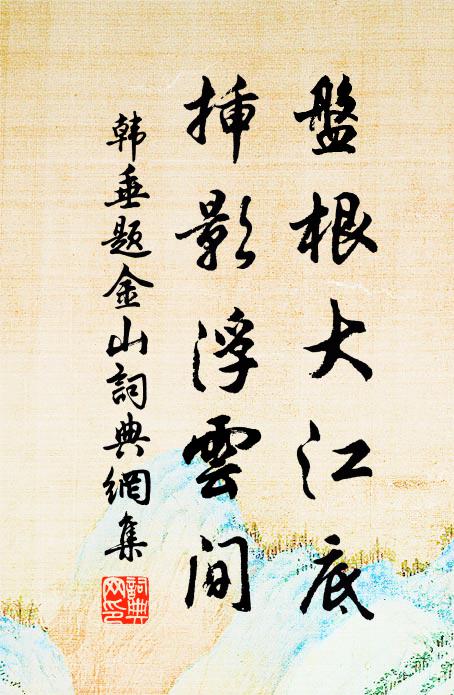 盤根大江底
插影浮雲間
韩垂题金山詞典網集
詞典网印